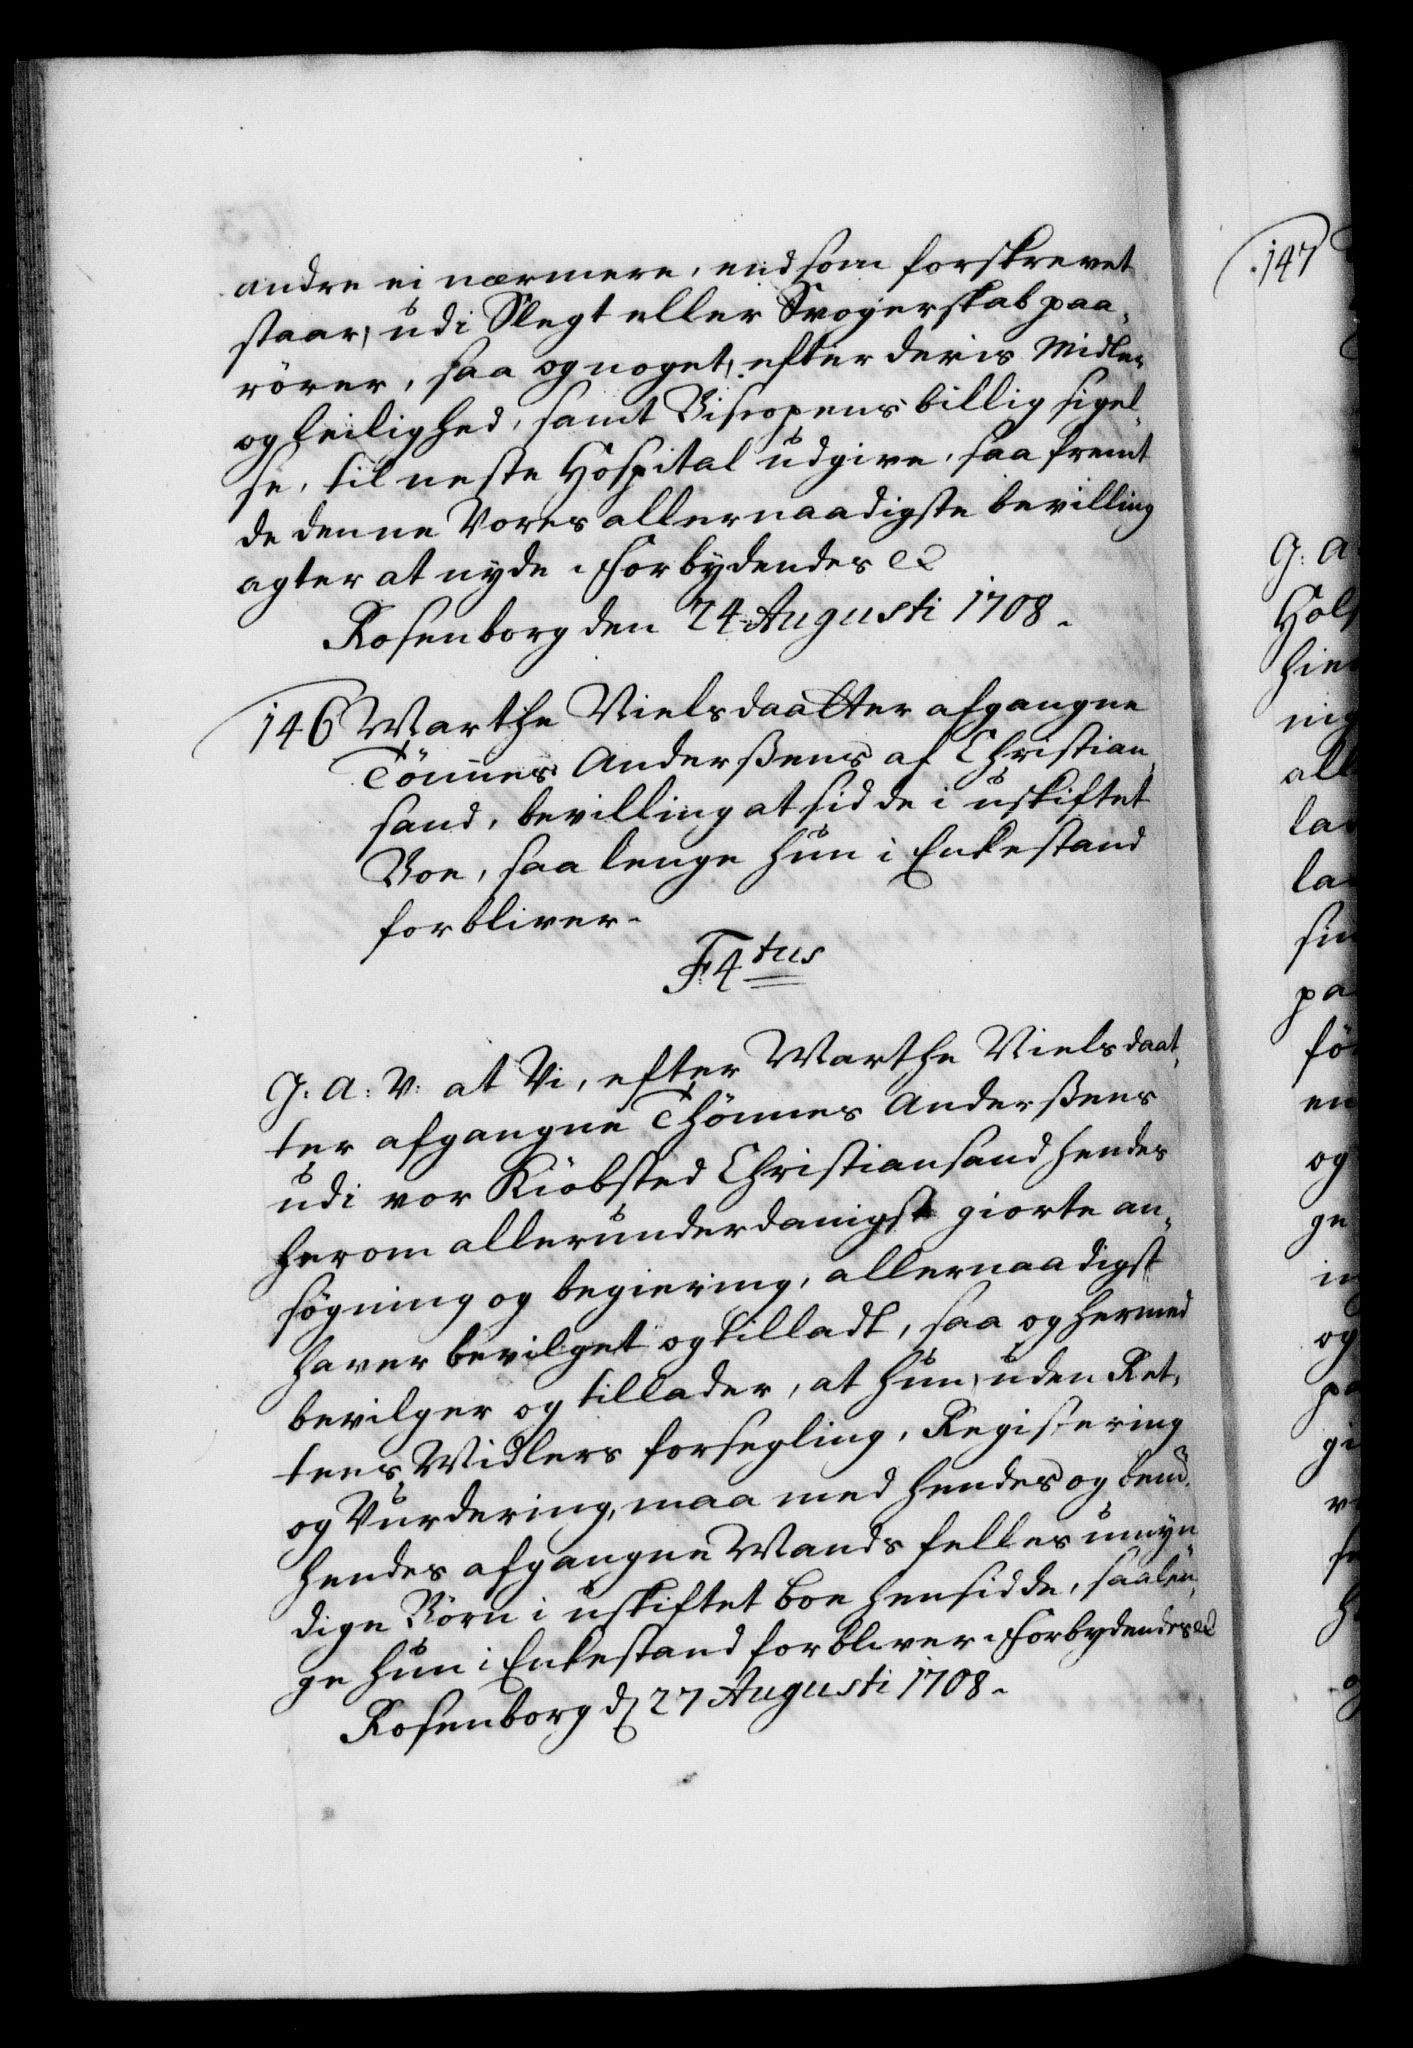 andre ei nærmere, end som forskrevet
staar, udi Slegt eller Svogerskab paa-
rörer, saa og noget, efter deris Midler
og leilighed, samt Biscopens billig sigel-
se, til neste Hospital udgive, saa fremt
de denne Vores allernaadigste bevilling
agter at nyde. Forbydendes &c
Rosenborg den 24 Augusti 1708.
146 Marthe Nielsdaatter afgangne
Tönnes Anderßens af Christian-
sand, bevilling at sidde i uskiftet
Boe, saa lenge hun i Enkestand
forbliver.
F. 4tus
G: A: V: at Vi, efter Marthe Nielsdaat-
ter afgangne Thönnes Anderßens
udi vor Kiöbsted Christiansand hendes
herom allerunderdanigst giorte an-
søgning og begiering, allernaadigst
haver bevilget og tilladt, saa og hermed
bevilger og tillader, at hun, uden Ret-
tens Midlers forsegling, Registering
og Vurdering, maa med hendes og bem:te
hendes afgangne Mands felles umyn-
dige Börn i uskiftet boe hensidde, saalen-
ge hun i Enkestand forbliver. Forbydendes &c
Rosenborg d. 27 Augusti 1708.
147
G: A